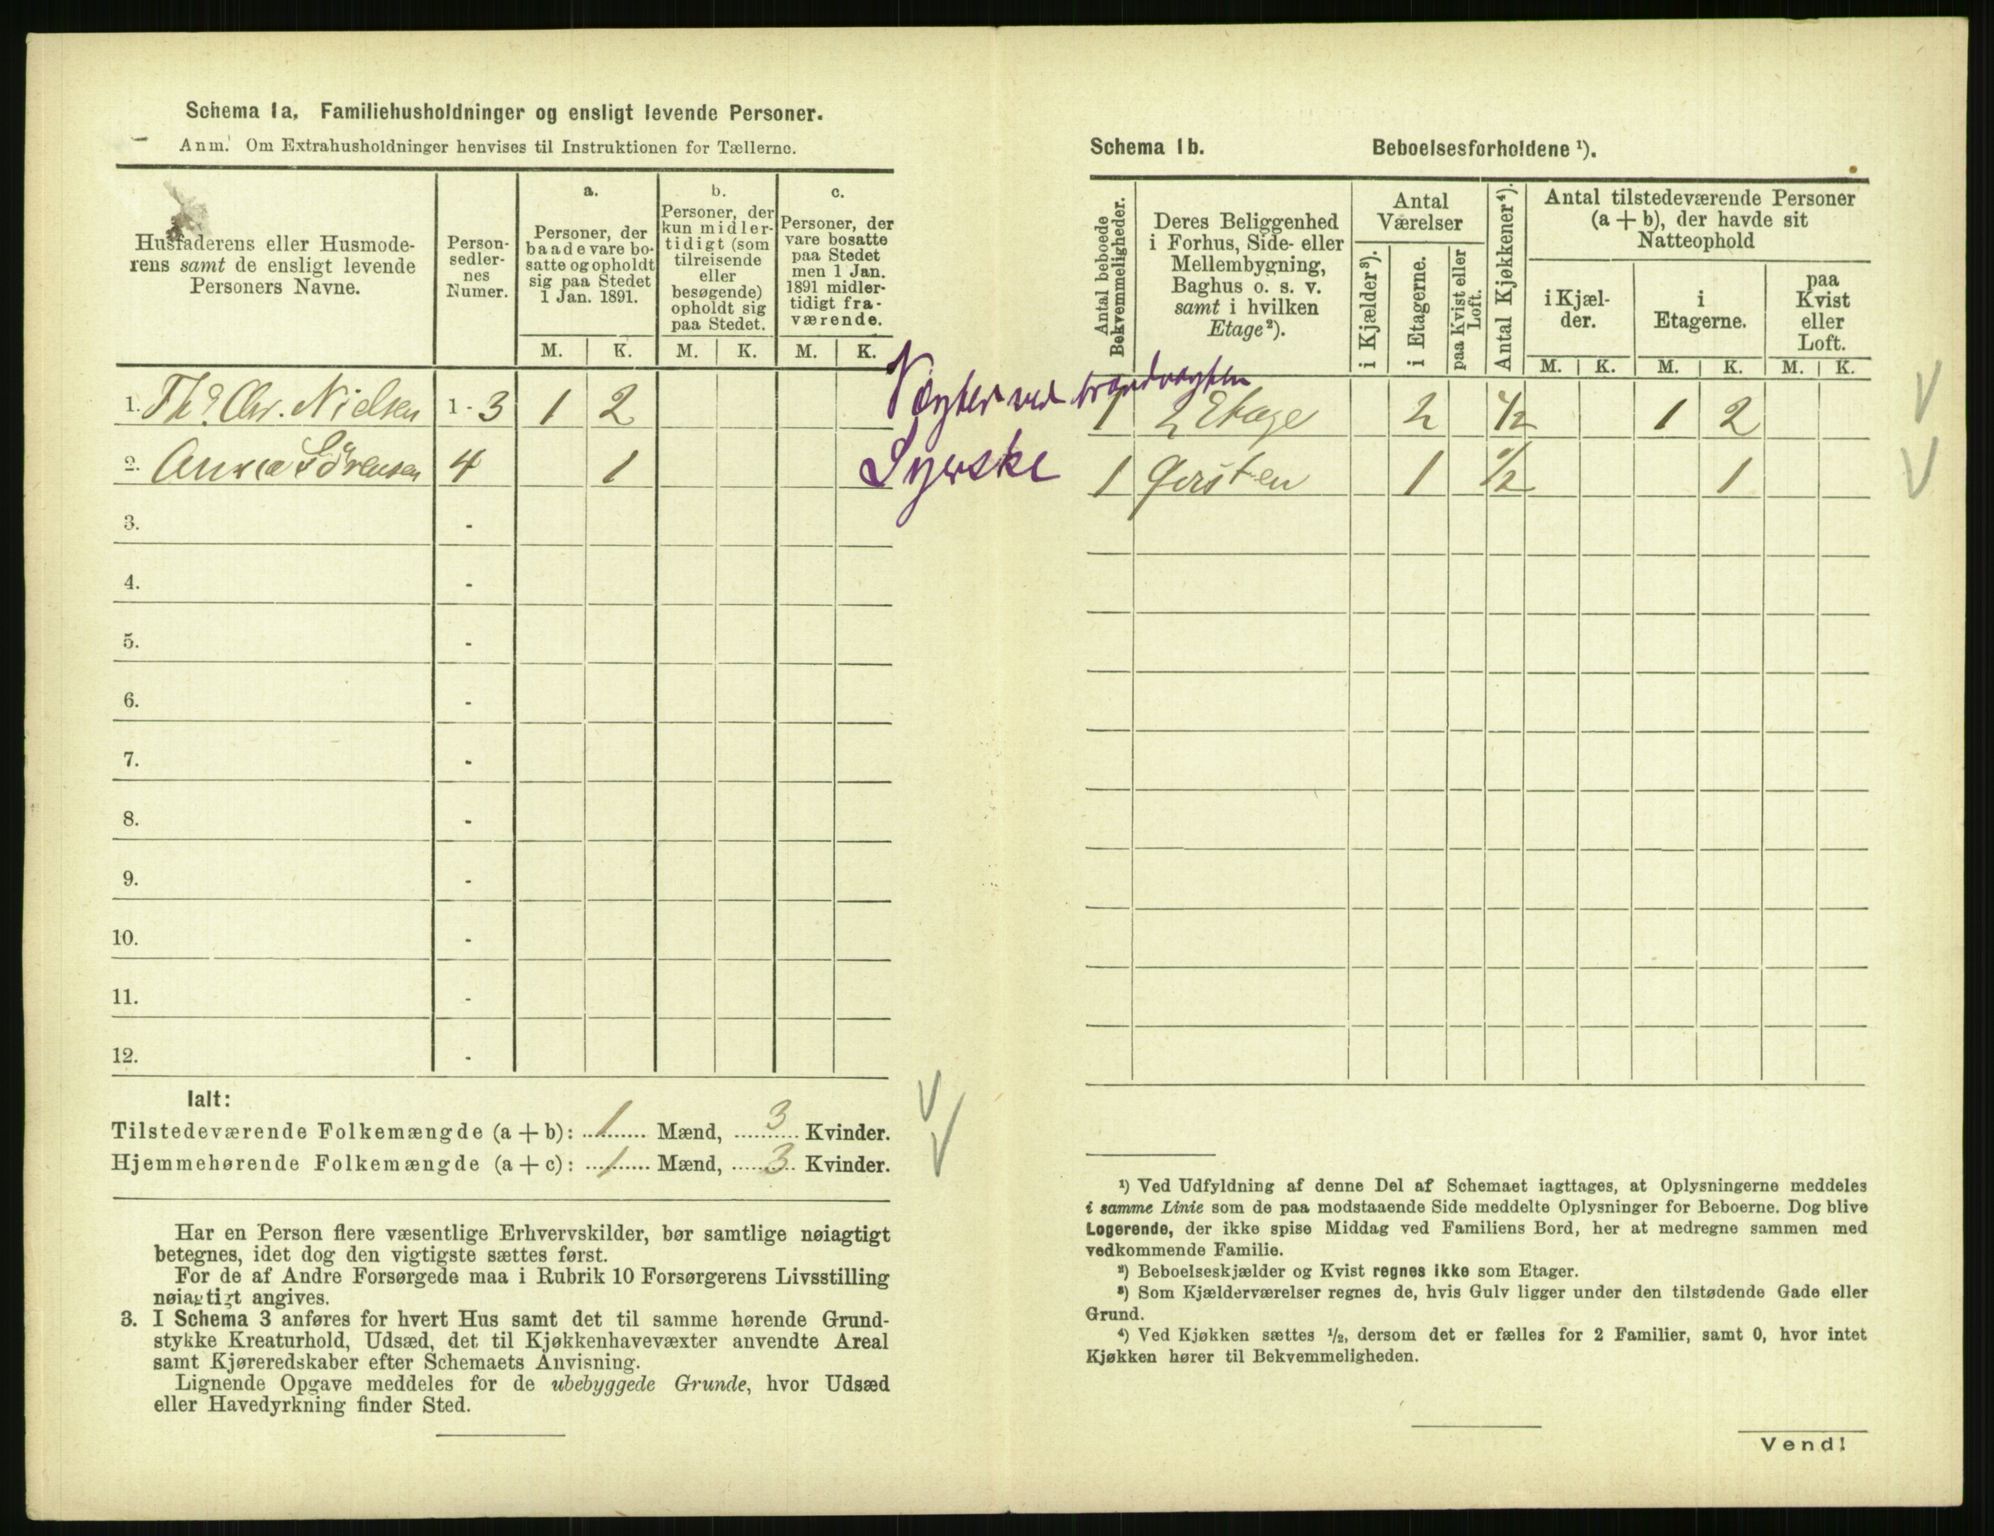 Schema 1a, Familiehusholdninger og ensligt levende Personer.
Anm. Om Extrahusholdninger henvises til Instruktionen for Tællerne.
Husfaderens eller Husmode-
rens samt de ensligt levende
Personers Navne.
Person-
sedler-
nes
Numer.
a.
Personer, der
baade vare bo-
satte og opholdt
sig paa Stedet
1 Jan. 1891.
b.
Personer, der
kun midler-
tidigt (som
tilreisende
eller
besøgende)
opholdt sig
paa Stedet.
c.
Personer, der
vare bosatte
paa Stedet
men 1 Jan.
1891 midler-
tidigt fra-
værende.
M. K. M. K. M. K.
1. Th? Chr. Nielsen 1 - 3 1 2 Vægter ved brandvagten
2. Anna Sörensen 4 1 Syerske
3. -
4. -
5. -
6. -
7. -
8. -
9. -
10. -
11. -
12. -
Ialt:
Tilstedeværende Folkemængde (a + b): 1 Mænd, 3 Kvinder.
Hjemmehørende Folkemængde (a + c): 1 Mænd, 3 Kvinder.
Har en Person flere væsentlige Erhvervskilder, bør samtlige nøiagtigt
betegnes, idet dog den vigtigste sættes først.
For de af Andre Forsørgede maa i Rubrik 10 Forsørgerens Livsstilling
nøiagtigt angives.
3. I Schema 3 anføres for hvert Hus samt det til samme hørende Grund-
stykke Kreaturhold, Udsæd, det til Kjøkkenhavevæxter anvendte Areal
samt Kjøreredskaber efter Schemaets Anvisning.
Lignende Opgave meddeles for de ubebyggede Grunde, hvor Udsæd
eller Havedyrkning finder Sted.
Schema 1b. Beboelsesforholdene ¹).
Antal beboede
Bekvemmeligheder.
Deres Beliggenhed
i Forhus, Side- eller
Mellembygning,
Baghus o. s. v.
samt i hvilken
Etage²).
Antal
Værelser
i Kjælder³).
i Etagerne.
paa Kvist eller
Loft.
Antal Kjøkkener⁴).
Antal tilstedeværende Personer
(a + b), der havde sit
Natteophold
i Kjæl-
der.
i
Etagerne.
paa
Kvist
eller
Loft.
M. K. M. K. M. K.
1 2 Etage 2 1/2 1 2
1 Førsten 1 1/2 1
¹) Ved Udfyldning af denne Del af Schemaet iagttages, at Oplysningerne meddeles
i samme Linie som de paa modstaaende Side meddelte Oplysninger for Beboerne. Dog blive
Logerende, der ikke spise Middag ved Familiens Bord, her at medregne sammen med
vedkommende Familie.
²) Beboelseskjælder og Kvist regnes ikke som Etager.
³) Som Kjælderværelser regnes de, hvis Gulv ligger under den tilstødende Gade eller
Grund.
⁴) Ved Kjøkken sættes ½, dersom det er fælles for 2 Familier, samt 0, hvor intet
Kjøkken hører til Bekvemmeligheden.
Vend!